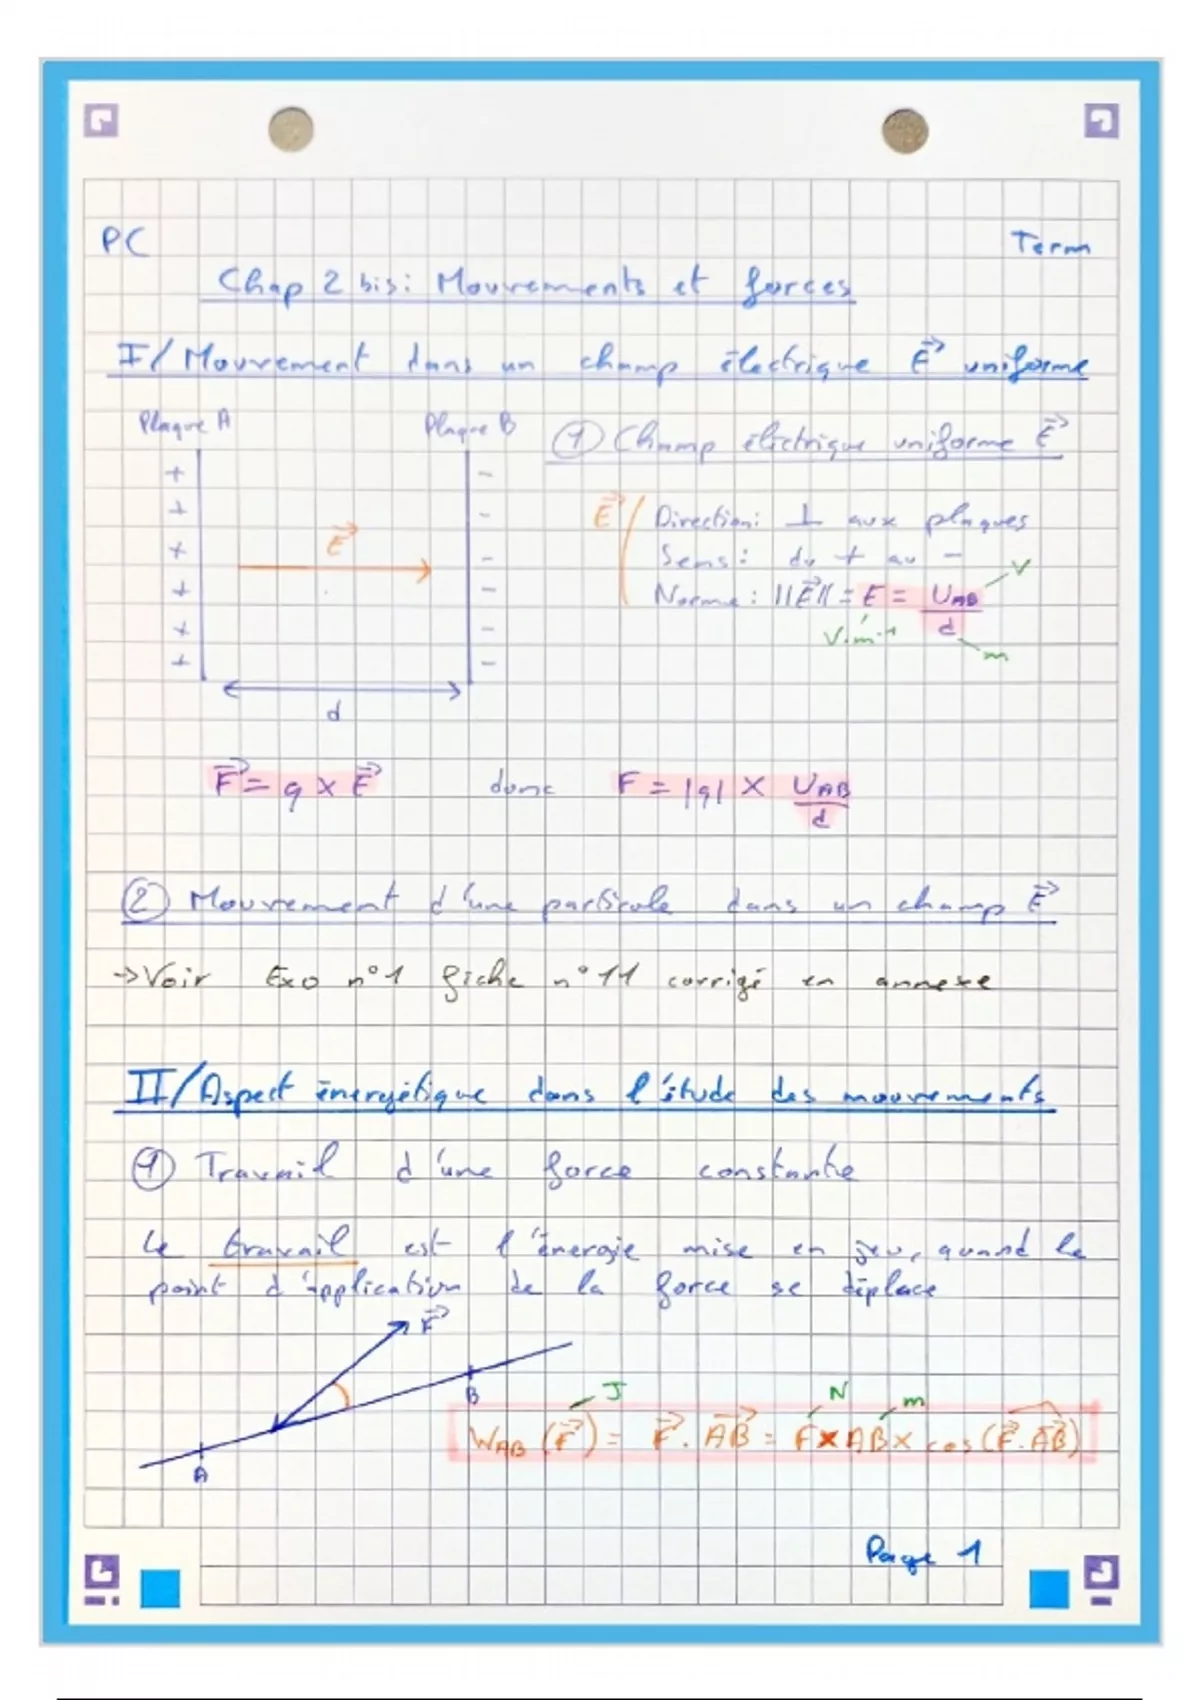 PC
Term
Chap 2 bis: Mouvements et forces
I/ Mouvement dans un champ électrique E⃗ uniforme
Plaque A
Plaque B
① Champ électrique uniforme E⃗
+ -
+ -
+ -
+ -
+ -
+ -
E⃗
d
E⃗
Direction: ⊥ aux plaques
Sens: du + au -
Norme: ||E⃗|| = E = U_AB/d
V
V.m⁻¹
m
F⃗ = q × E⃗ donc F = |q| × U_AB/d
② Mouvement d'une particule dans un champ E⃗
→ Voir Exo n°1 fiche n°11 corrigé en annexe
II/ Aspect énergétique dans l'étude des mouvements
① Travail d'une force constante
Le travail est l'énergie mise en jeu, quand le
point d'application de la force se déplace
F⃗
A
B
J
N
m
W_AB (F⃗) = F⃗ . AB⃗ = F × AB × cos(F⃗.AB⃗)
Page 1